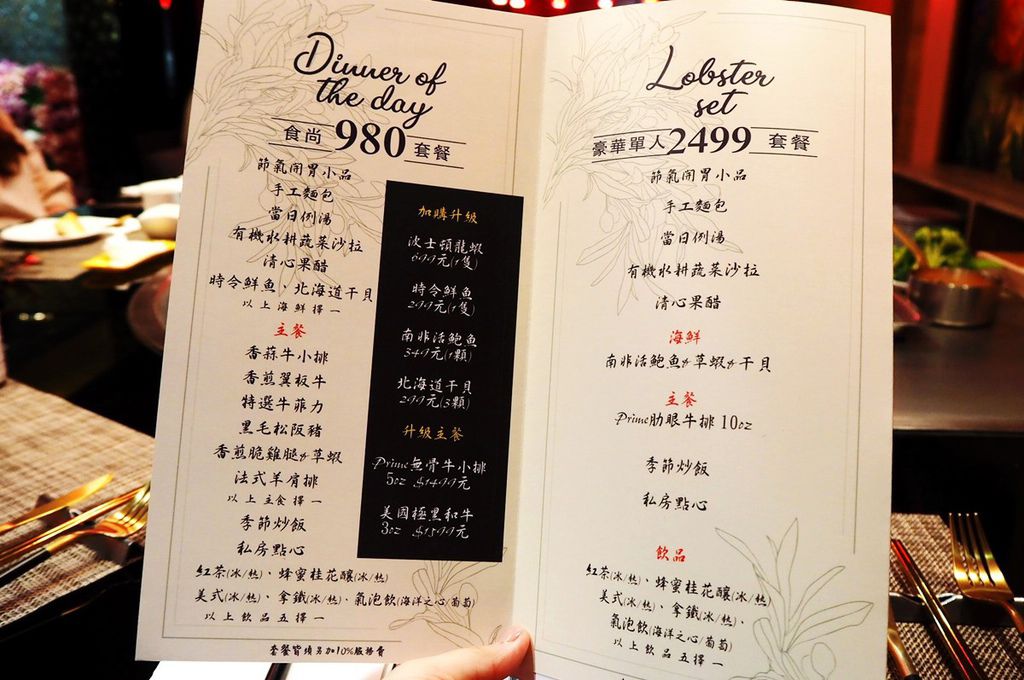 Dinner of
the day
食尚 980 套餐
節氣開胃小品
手工麵包
當日例湯
有機水耕蔬菜沙拉
清心果醋
時令鮮魚、北海道干貝
以上海鮮擇一
主餐
香蒜牛小排
香煎翼板牛
特選牛菲力
黑毛松阪豬
香煎脆雞腿&草蝦
法式羊肩排
以上主食擇一
季節炒飯
私房點心
紅茶(冰/熱)、蜂蜜桂花釀(冰/熱)
美式(冰/熱)、拿鐵(冰/熱)、氣泡飲(海洋之心/葡萄)
以上飲品五擇一
套餐皆須另加10%服務費
加購升級
波士頓龍蝦
699元(1隻)
時令鮮魚
299元(1隻)
南非活鮑魚
349元(1顆)
北海道干貝
299元(3顆)
升級主餐
Prime無骨牛小排
5oz $1499元
美國極黑和牛
3oz $1599元
Lobster
set
豪華單人 2499 套餐
節氣開胃小品
手工麵包
當日例湯
有機水耕蔬菜沙拉
清心果醋
海鮮
南非活鮑魚&草蝦&干貝
主餐
Prime肋眼牛排 10oz
季節炒飯
私房點心
飲品
紅茶(冰/熱)、蜂蜜桂花釀(冰/熱)
美式(冰/熱)、拿鐵(冰/熱)、
氣泡飲(海洋之心/葡萄)
以上飲品五擇一